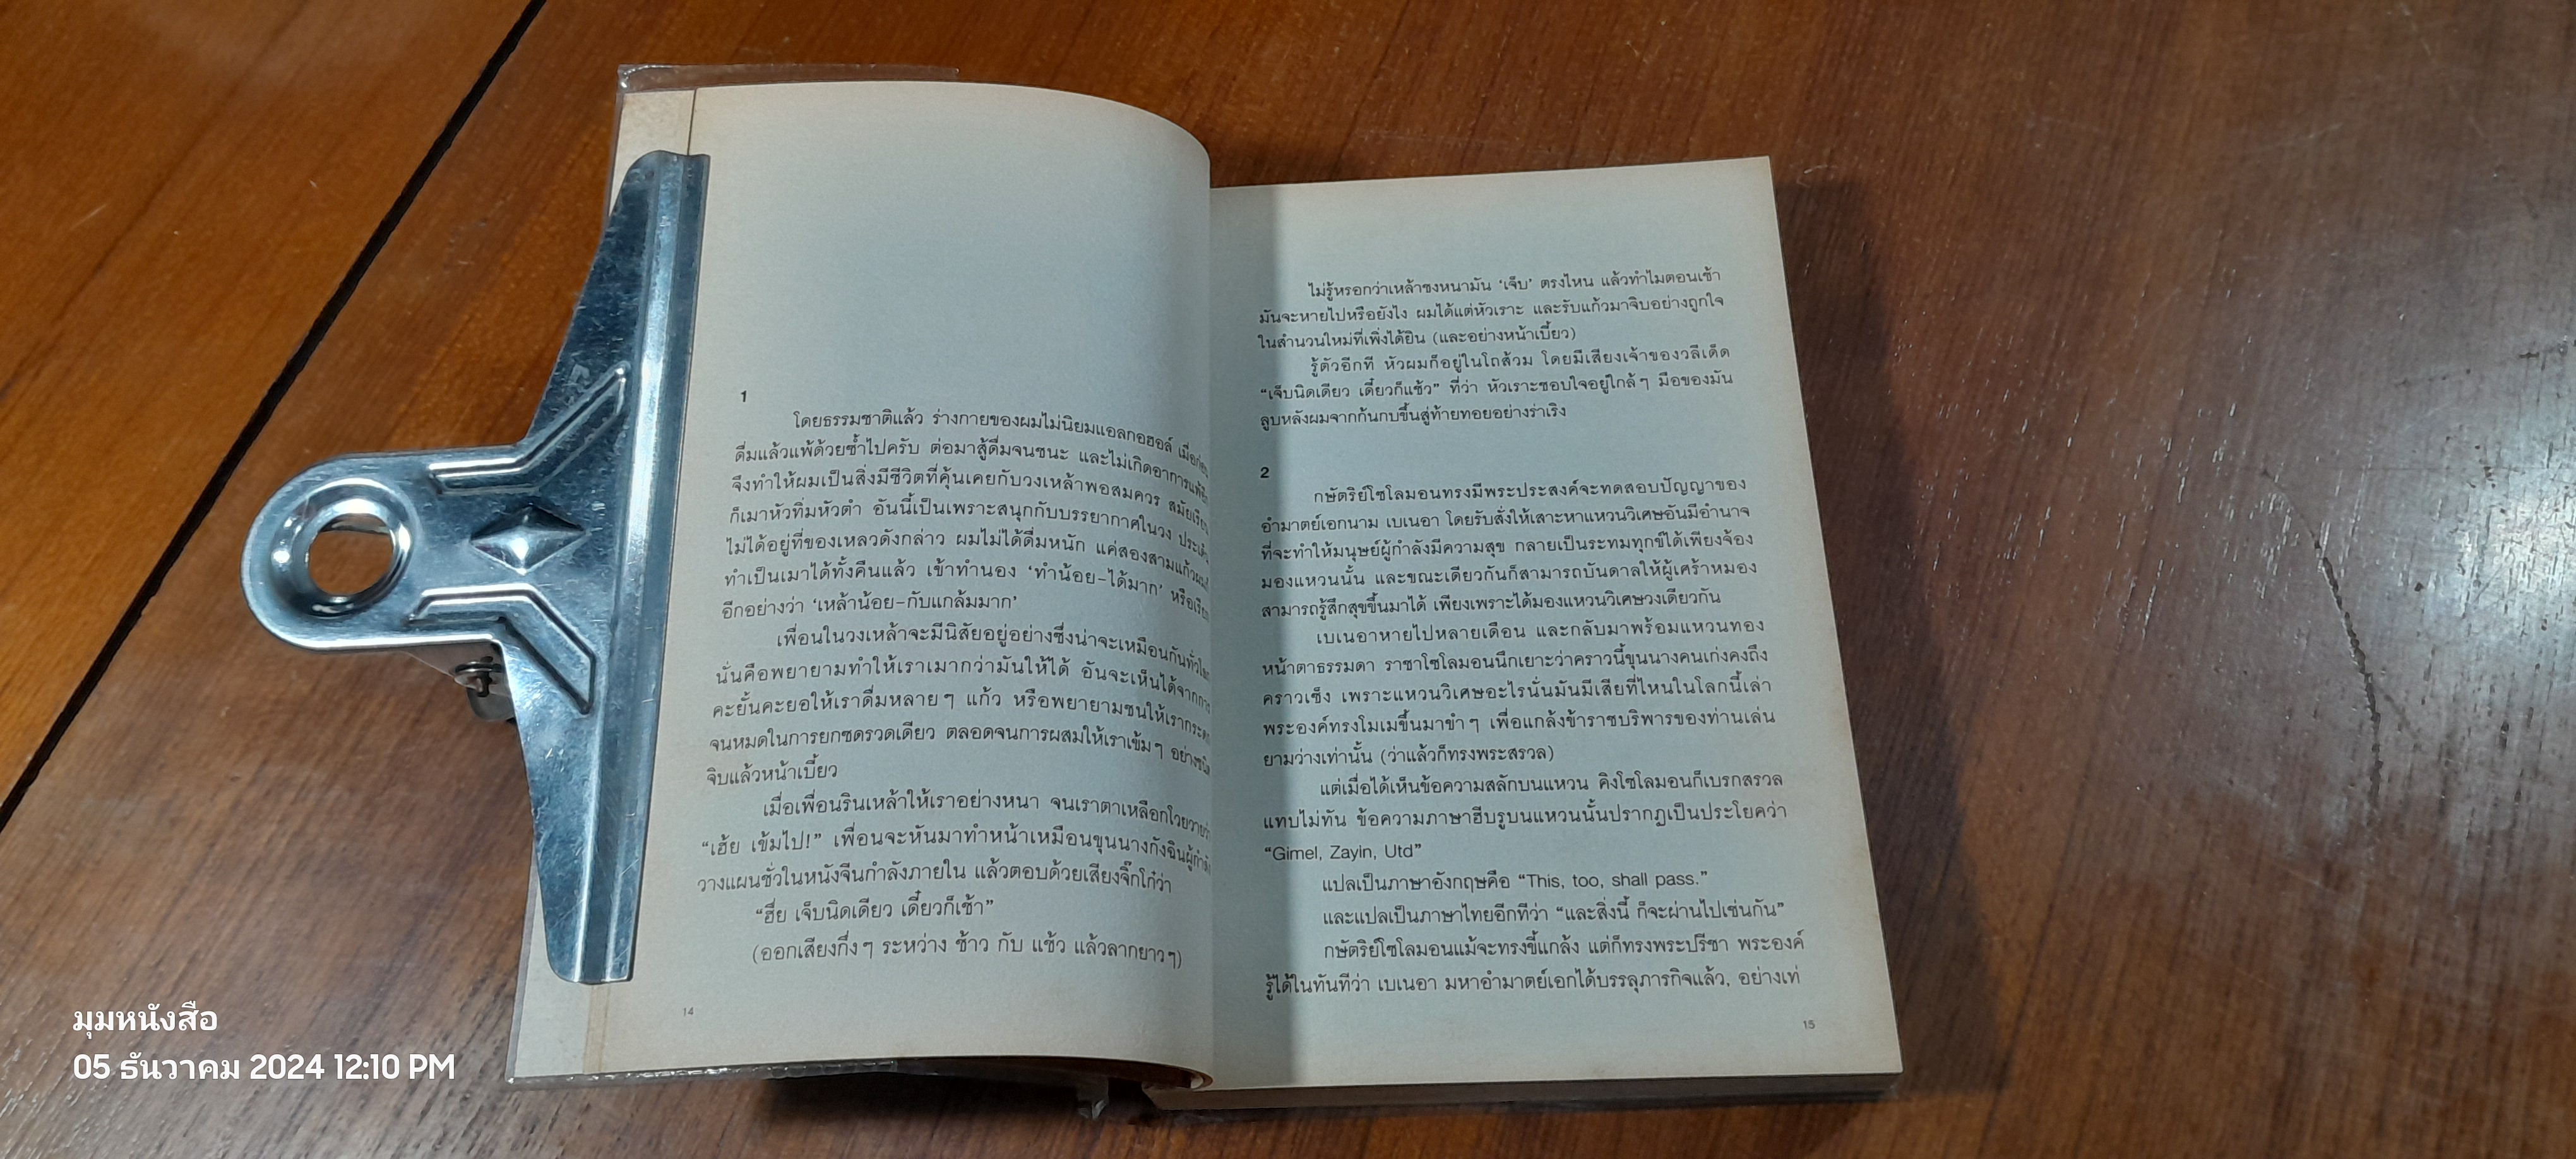 1
โดยธรรมชาติแล้ว ร่างกายของผมไม่นิยมแอลกอฮอล์ เมื่อก่อน
ดื่มแล้วแพ้ด้วยซ้ำไปครับ ต่อมาสู้ดื่มจนชนะ และไม่เกิดอาการแพ้อีก
จึงทำให้ผมเป็นสิ่งมีชีวิตที่คุ้นเคยกับวงเหล้าพอสมควร สมัยเรียน
ก็เมาหัวทิ่มหัวตำ อันนี้เป็นเพราะสนุกกับบรรยากาศในวง ประเด็น
ไม่ได้อยู่ที่ของเหลวดังกล่าว ผมไม่ได้ดื่มหนัก แค่สองสามแก้วผมก็
ทำเป็นเมาได้ทั้งคืนแล้ว เข้าทำนอง ‘ทำน้อย-ได้มาก’ หรือเรียก
อีกอย่างว่า ‘เหล้าน้อย-กับแกล้มมาก’
เพื่อนในวงเหล้าจะมีนิสัยอยู่อย่างซึ่งน่าจะเหมือนกันทั่วโลก
นั่นคือพยายามทำให้เราเมากว่ามันให้ได้ อันจะเห็นได้จากการ
คะยั้นคะยอให้เราดื่มหลายๆ แก้ว หรือพยายามชนให้เรากระดก
จนหมดในการยกซดรวดเดียว ตลอดจนการผสมให้เราเข้มๆ อย่างชนิด
จิบแล้วหน้าเบี้ยว
เมื่อเพื่อนรินเหล้าให้เราอย่างหนา จนเราตาเหลือกโวยวายว่า
“เฮ้ย เข้มไป!” เพื่อนจะหันมาทำหน้าเหมือนขุนนางกังฉินผู้กำลัง
วางแผนชั่วในหนังจีนกำลังภายใน แล้วตอบด้วยเสียงจิ๊กโก๋ว่า
“ฮึ่ย เจ็บนิดเดียว เดี๋ยวก็เช้า”
(ออกเสียงกึ่งๆ ระหว่าง ช้าว กับ แช้ว แล้วลากยาวๆ)
14
ไม่รู้หรอกว่าเหล้าชงหนามัน ‘เจ็บ’ ตรงไหน แล้วทำไมตอนเช้า
มันจะหายไปหรือยังไง ผมได้แต่หัวเราะ และรับแก้วมาจิบอย่างถูกใจ
ในสำนวนใหม่ที่เพิ่งได้ยิน (และอย่างหน้าเบี้ยว)
รู้ตัวอีกที หัวผมก็อยู่ในโถส้วม โดยมีเสียงเจ้าของวลีเด็ด
“เจ็บนิดเดียว เดี๋ยวก็แช้ว” ที่ว่า หัวเราะชอบใจอยู่ใกล้ๆ มือของมัน
ลูบหลังผมจากก้นกบขึ้นสู่ท้ายทอยอย่างร่าเริง
2
กษัตริย์โซโลมอนทรงมีพระประสงค์จะทดสอบปัญญาของ
อำมาตย์เอกนาม เบเนอา โดยรับสั่งให้เสาะหาแหวนวิเศษอันมีอำนาจ
ที่จะทำให้มนุษย์ผู้กำลังมีความสุข กลายเป็นระทมทุกข์ได้เพียงจ้อง
มองแหวนนั้น และขณะเดียวกันก็สามารถบันดาลให้ผู้เศร้าหมอง
สามารถรู้สึกสุขขึ้นมาได้ เพียงเพราะได้มองแหวนวิเศษวงเดียวกัน
เบเนอาหายไปหลายเดือน และกลับมาพร้อมแหวนทอง
หน้าตาธรรมดา ราชาโซโลมอนนึกเยาะว่าคราวนี้ขุนนางคนเก่งคงถึง
คราวเซ็ง เพราะแหวนวิเศษอะไรนั่นมันมีเสียที่ไหนในโลกนี้เล่า
พระองค์ทรงโมเมขึ้นมาขำๆ เพื่อแกล้งข้าราชบริพารของท่านเล่น
ยามว่างเท่านั้น (ว่าแล้วก็ทรงพระสรวล)
แต่เมื่อได้เห็นข้อความสลักบนแหวน คิงโซโลมอนก็เบรกสรวล
แทบไม่ทัน ข้อความภาษาฮีบรูบนแหวนนั้นปรากฏเป็นประโยคว่า
“Gimel, Zayin, Utd”
แปลเป็นภาษาอังกฤษคือ “This, too, shall pass.”
และแปลเป็นภาษาไทยอีกทีว่า “และสิ่งนี้ ก็จะผ่านไปเช่นกัน”
กษัตริย์โซโลมอนแม้จะทรงขี้แกล้ง แต่ก็ทรงพระปรีชา พระองค์
รู้ได้ในทันทีว่า เบเนอา มหาอำมาตย์เอกได้บรรลุภารกิจแล้ว, อย่างเท่
15
มุมหนังสือ
05 ธันวาคม 2024 12:10 PM